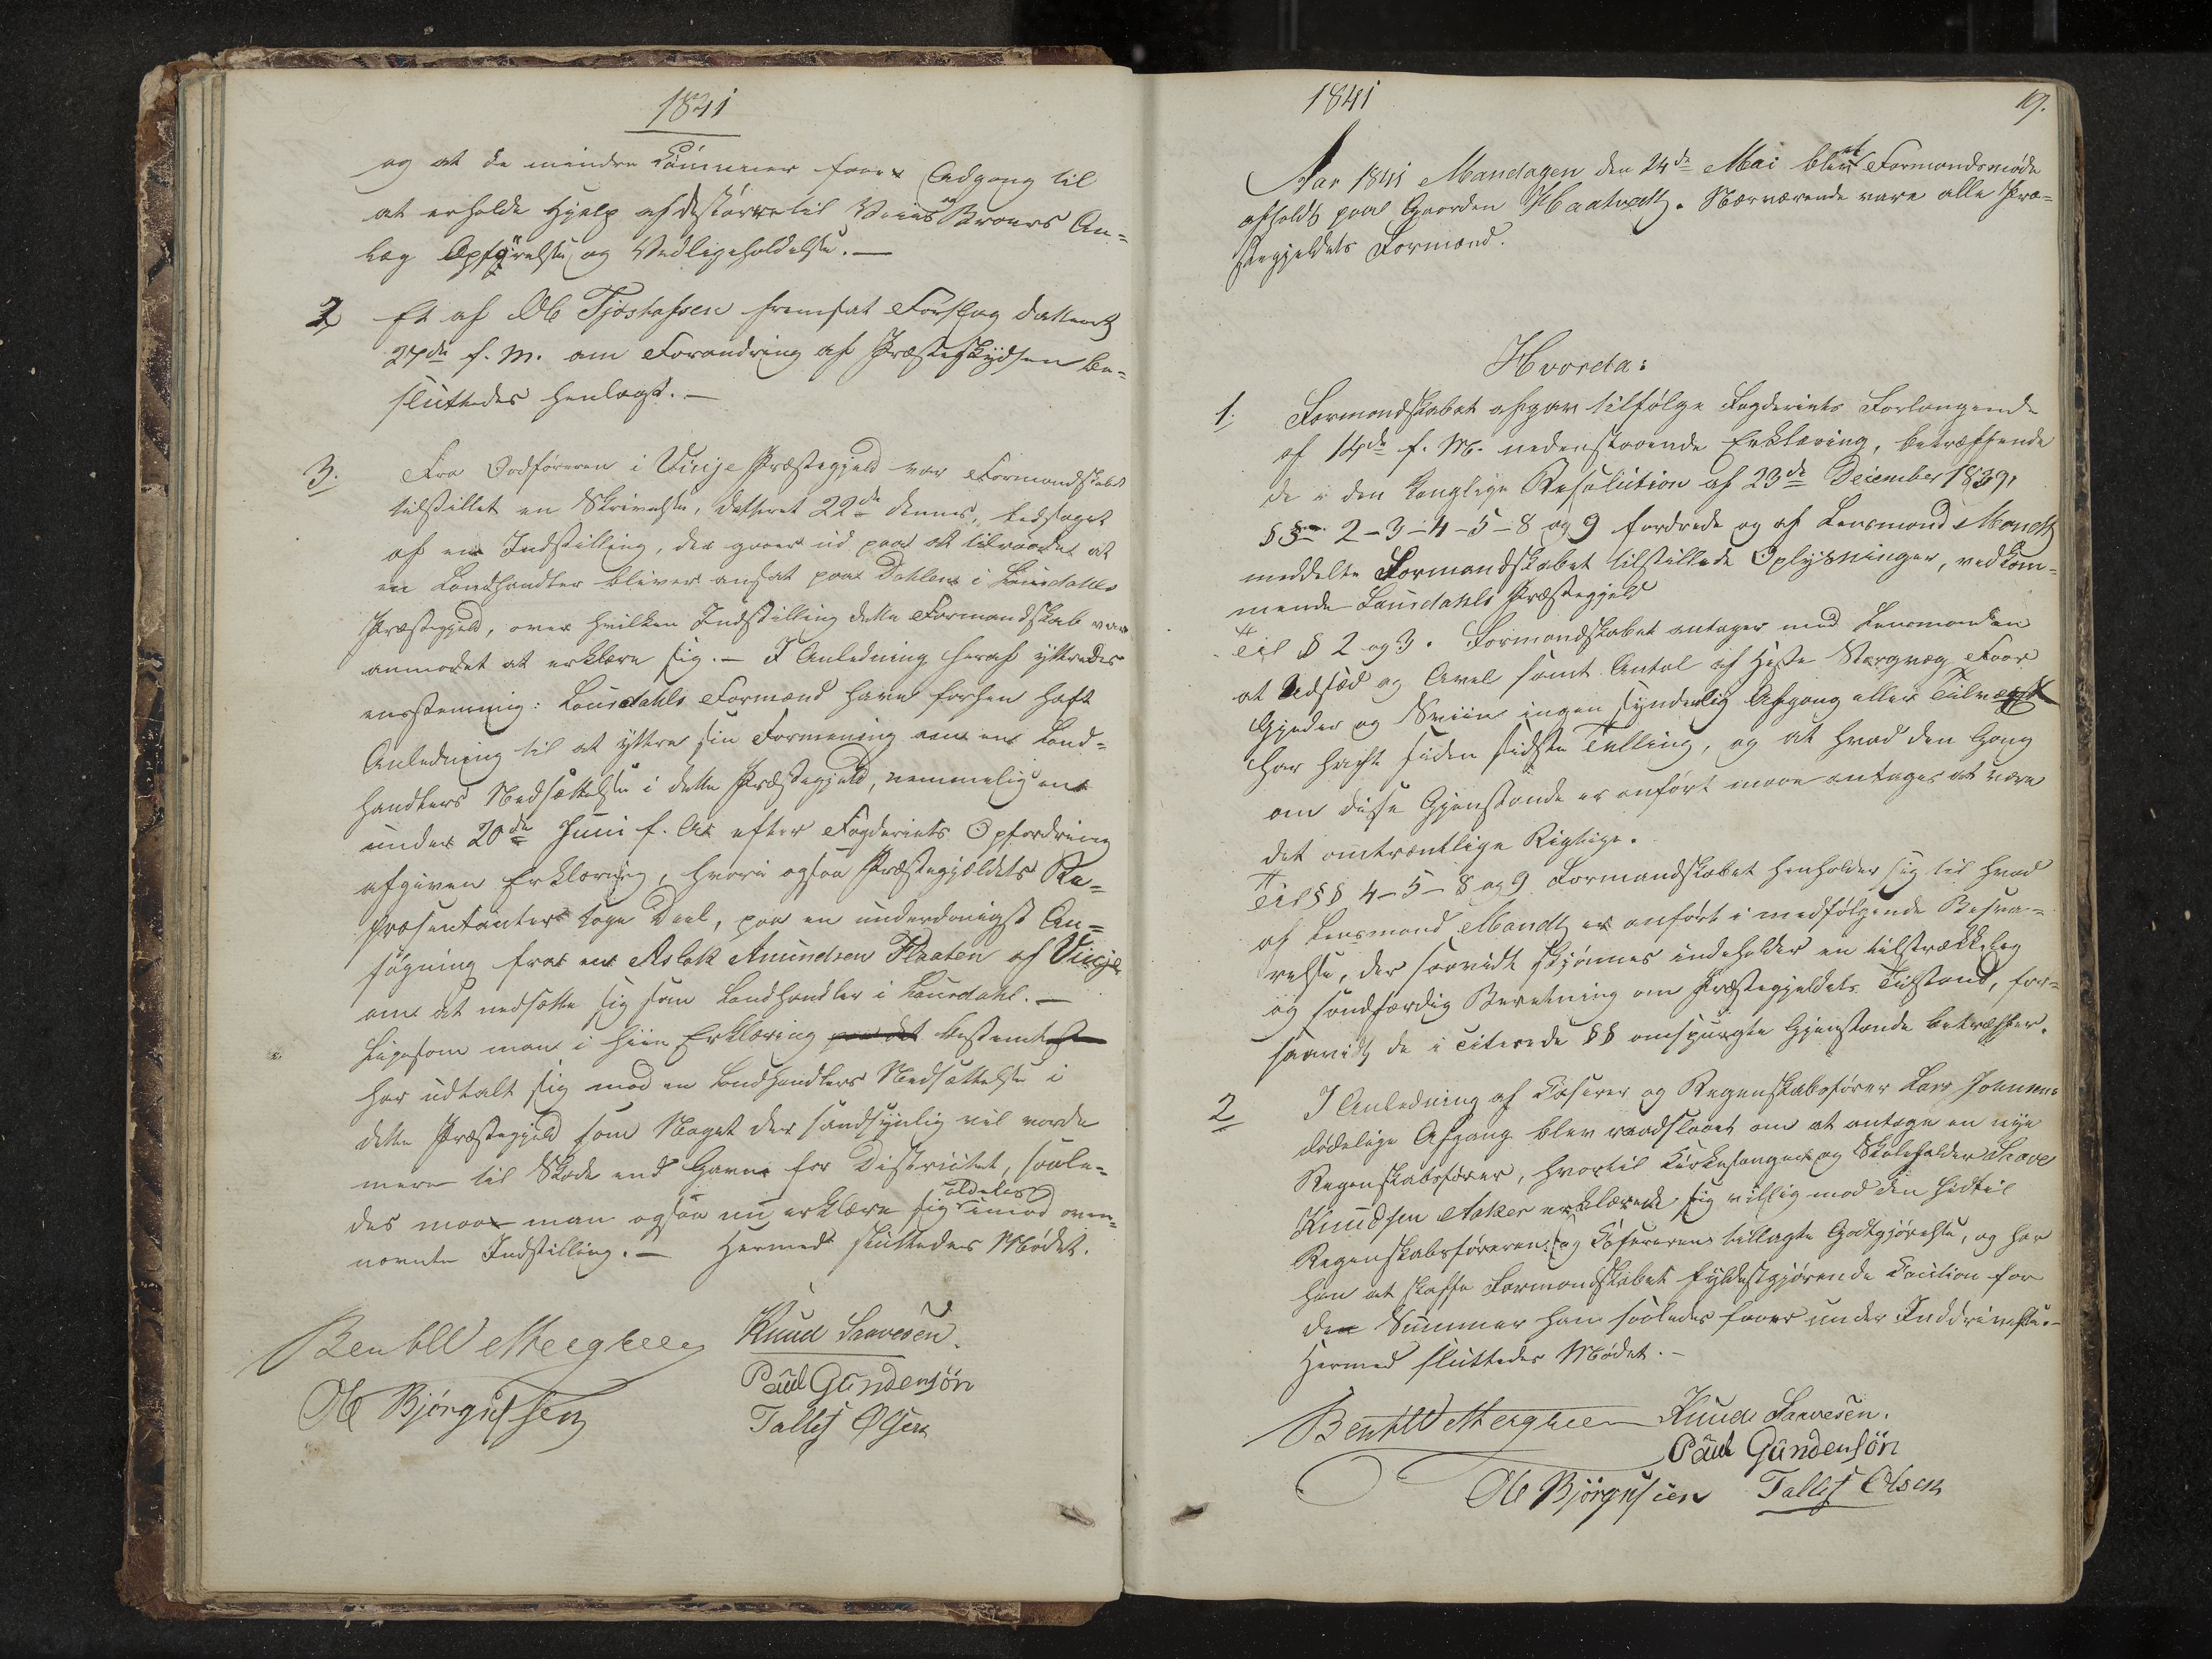 1841
og at de mindre Communer faar Adgang til
at erholde Hjelp af de større til Veies og Broers An=
læg Opførelse og Vedligeholdelse. —
2 Et af Ole Tjøstofsen fremsat Forslag dateret
27de f. M. om Forandring af Præsteskydsen be=
sluttedes henlagt. —
3. Fra Ordføreren i Vinje Præstegjeld var Formandskabet
tilstillet en Skrivelse, dateret 22de dennes, ledsaget
af en Indstilling, der gaaer ud paa at tilraade at
en Landhandler bliver ansat paa Dahlen i Laurdahls
Præstegjeld, over hvilken Indstilling dette Formandskab var
anmodet at erklære sig. — I Anledning heraf yttredes
eenstemmig: Laurdahls Formænd have forhen haft
Anledning til at yttre sin Formening om en Land=
handlers Nedsættelse i dette Præstegjeld, nemmelig en
under 20de Juni f. A. efter Fogderiets Opfordring
afgiven Erklæring, hvori ogsaa Præstegjældets Re=
præsentanter toge Deel, paa en underdanigst An=
søgning fra en Aslak Amundsen Flaaten af Vinje
om at nedsætte sig som Landhandler i Laurdahl. —
Ligesom man i hiin Erklæring paa det bestemteste
har udtalt sig mod en Landhandlers Nedsættelse i
dette Præstegjeld som Noget der sandsynlig vil vorde
mere til Skade end Gavn for Districtet, saale=
des maa man ogsaa nu erklære sig aldeles imod oven=
nævnte Indstilling. — Hermed sluttedes Mødet.
Knud Saavesen.
Paul Gundensøn
Ole Bjørgufsen
Tallef Olsen
1841
19.
Aar 1841 Mandagen den 24de Mai blev et Formandsmøde
afholdt paa Gaarden Haatvedt. Nærværende vare alle Præ=
stegjeldets Formænd.
Hvorda:
1. Formandskabet afgav tilfølge Fogderiets Forlangende
af 14de f. M. nedenstaaende Erklæring, betræffende
de i den Kongelige Resolution af 23de December 1839
§§ 2-3-4-5-8 og 9 fordrede og af Lensmand Mandt
meddelte Formandskabet tilstillede Oplysninger, vedkom=
mende Laurdahls Præstegjeld
Til § 2 og 3. Formandskabet antager med Lensmanden
at Udsæd og Avel samt Antal af Heste Storqvæg Faar
Gjeder og Sviin ingen synderlig Afgang eller Tilvæxt
har havt siden sidste Telling, og at hvad den Gang
om disse Gjenstande er anført maae antages at være
det omtrentlige Rigtige.
Til §§ 4-5-8 og 9 Formandskabet henholder sig til hvad
af Lensmand Mandt er anført i medfølgende Besva=
relse, der saavidt skjønnes indeholder en tilstrækkelig
og sandfærdig Beretning om Præstegjeldets Tilstand, for=
saavidt de i citerede §§ omspurgte Gjenstande betræffer.
2 I Anledning af Kaserer og Regenskabsfører Lars Johnsens
dødelige Afgang blev raadslaaet om at antage en nye
Regenskabsfører, hvortil Kirkesanger og Skoleholder Saave
Knudsen Aaker erklærede sig villig mod den hidtil
Regenskabsføreren og Kasereren tillagte Godtgjørelse, og har
han at skaffe Formandskabet fyldestgjørende Caution for
de Summer han saaledes faaer under Inddrivelse. —
Hermed sluttedes Mødet. —
Knud Saavesen.
Paul Gundensøn
Ole Bjørgufsen Tallef Olsen